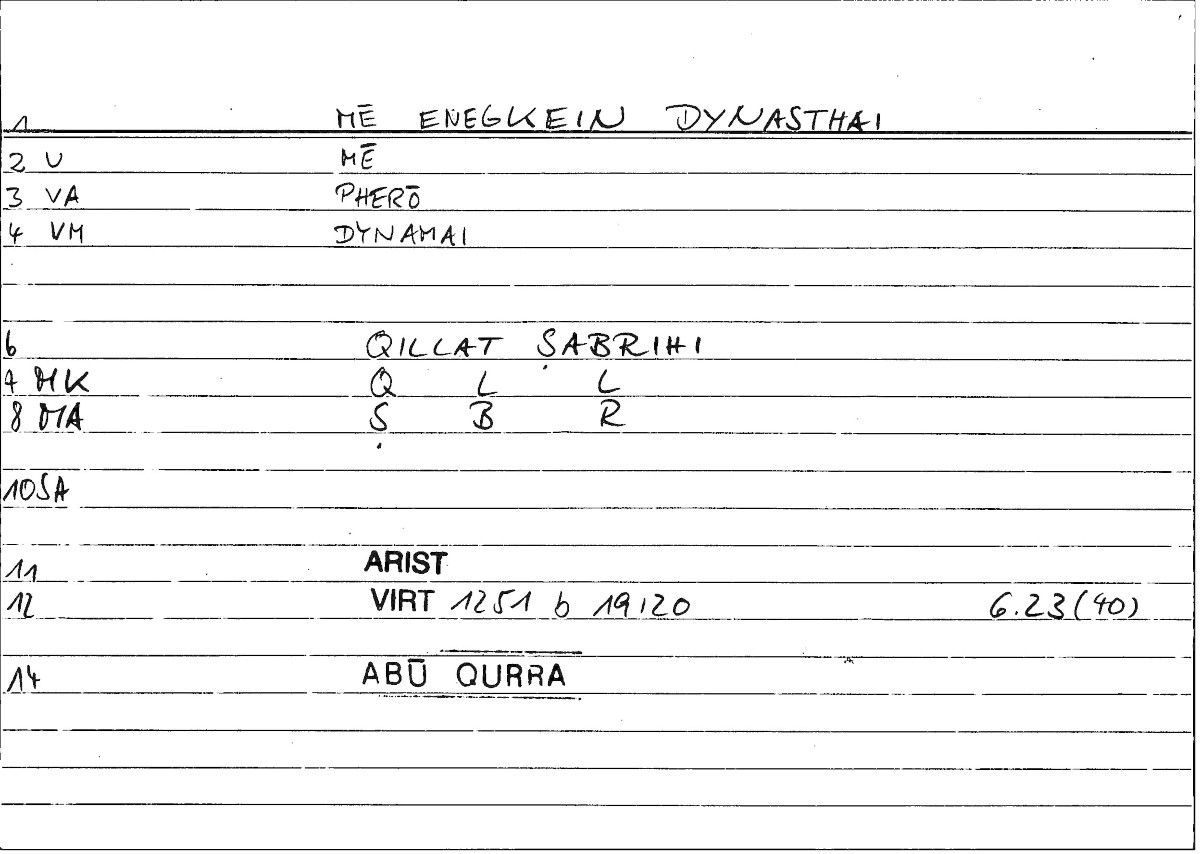 1 MĒ ENEGKEIN DYNASTHAI
2 U MĒ
3 VA PHERŌ
4 VM DYNAMAI
6 QILLAT ṢABRIHI
7 MK Q L L
8 MA Ṣ B R
10 SA
11 ARIST
12 VIRT 1251 b 19,20 6.23(40)
14 ABŪ QURRA